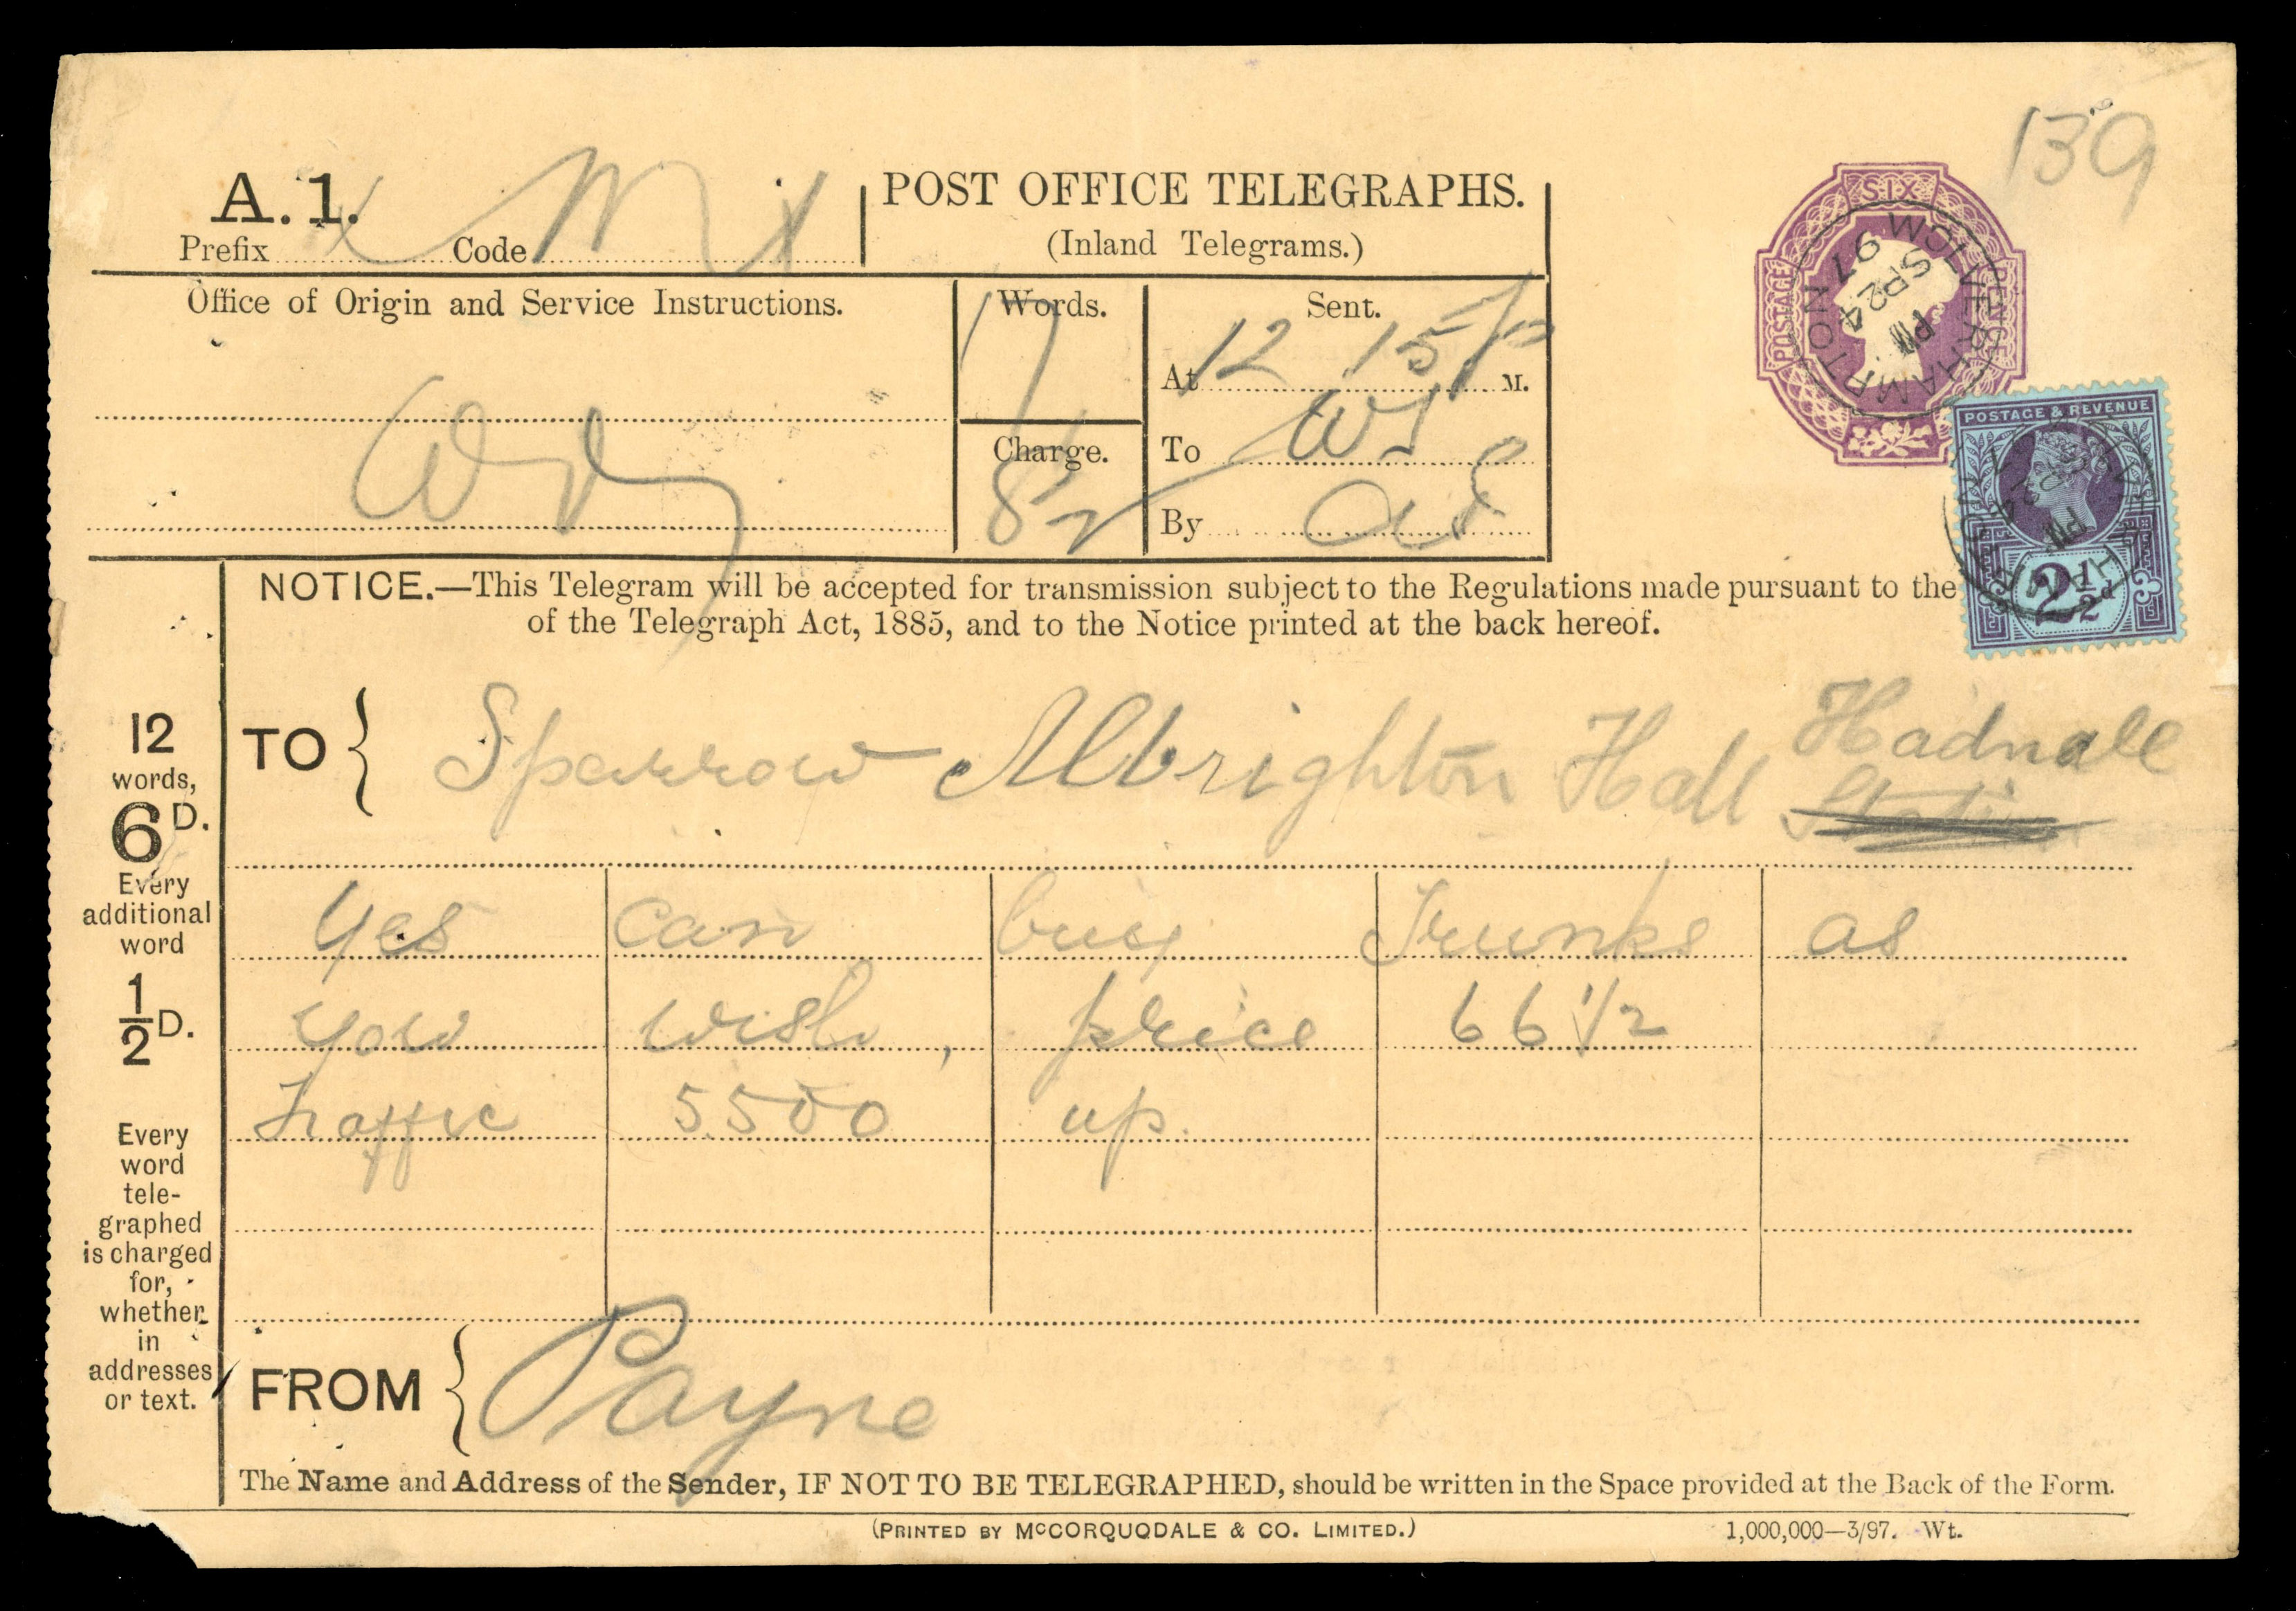 139
A. 1.
Prefix Code M
POST OFFICE TELEGRAPHS.
(Inland Telegrams.)
SIX PENCE POSTAGE
WOLVERHAMPTON
PM
SP 24
97
Office of Origin and Service Instructions.
Words.
17
Charge.
8½
Sent.
At 12 15 P M.
To WS
By
POSTAGE & REVENUE
2½d
NOTICE.—This Telegram will be accepted for transmission subject to the Regulations made pursuant to the
of the Telegraph Act, 1885, and to the Notice printed at the back hereof.
12
words,
6D.
Every
additional
word
1/2 D.
Every
word
tele-
graphed
is charged
for,
whether
in
addresses
or text.
TO { Sparrow Albrighton Hall Hadnall
Station
Yes can buy Trunks as
you wish, price 66 1/2
Traffic 5500 up.
FROM { Payne
The Name and Address of the Sender, IF NOT TO BE TELEGRAPHED, should be written in the Space provided at the Back of the Form.
(PRINTED BY McCORQUODALE & CO. LIMITED.) 1,000,000—3/97. Wt.